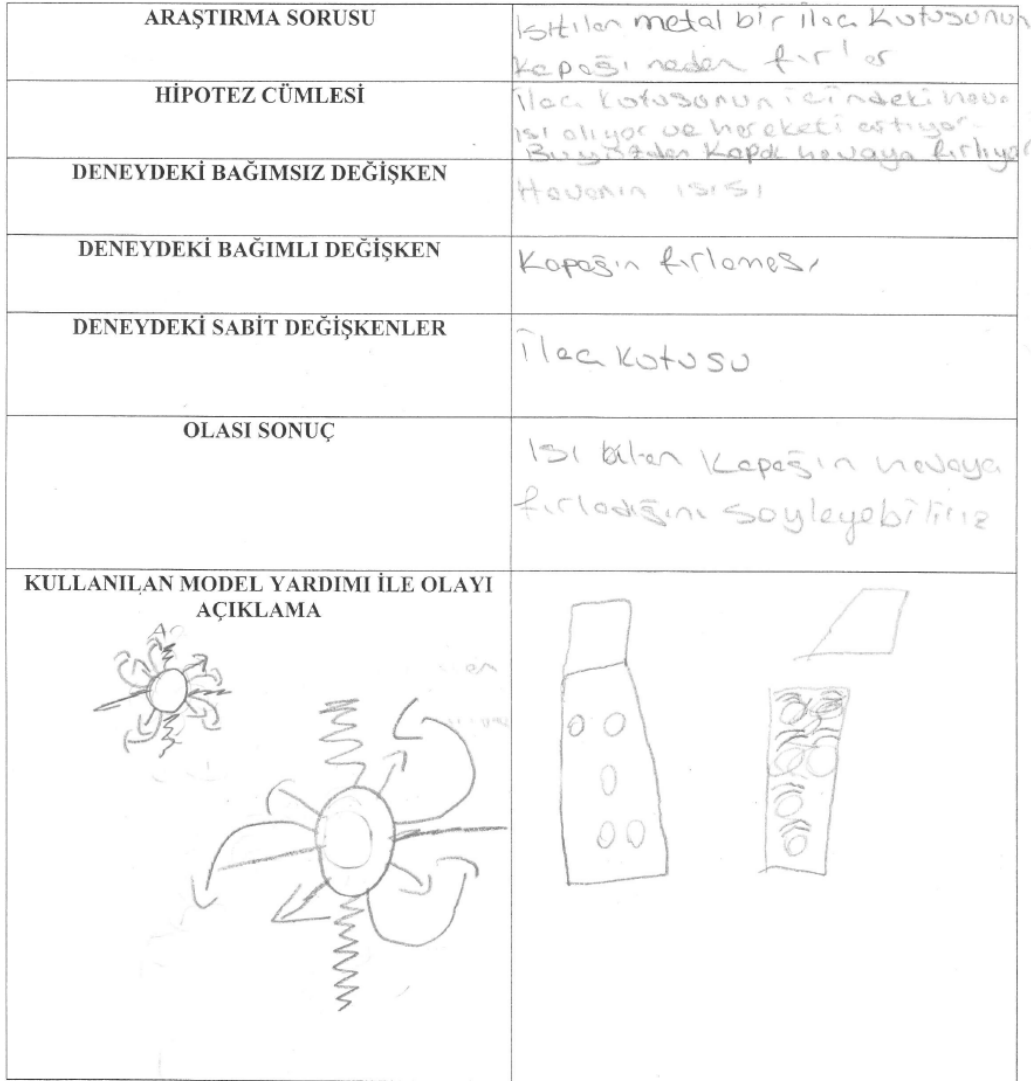 ARAŞTIRMA SORUSU
Isıtılan metal bir ilaç kutusunun
kapağı neden fırlar
HİPOTEZ CÜMLESİ
İlaç kutusunun içindeki hava
ısı alıyor ve hareketi artıyor.
Bu yüzden kapak havaya fırlıyor
DENEYDEKİ BAĞIMSIZ DEĞİŞKEN
Havanın ısısı
DENEYDEKİ BAĞIMLI DEĞİŞKEN
Kapağın fırlaması
DENEYDEKİ SABİT DEĞİŞKENLER
İlaç kutusu
OLASI SONUÇ
Isı kapağın havaya
fırladığını söyleyebiliriz
KULLANILAN MODEL YARDIMI İLE OLAYI
AÇIKLAMA